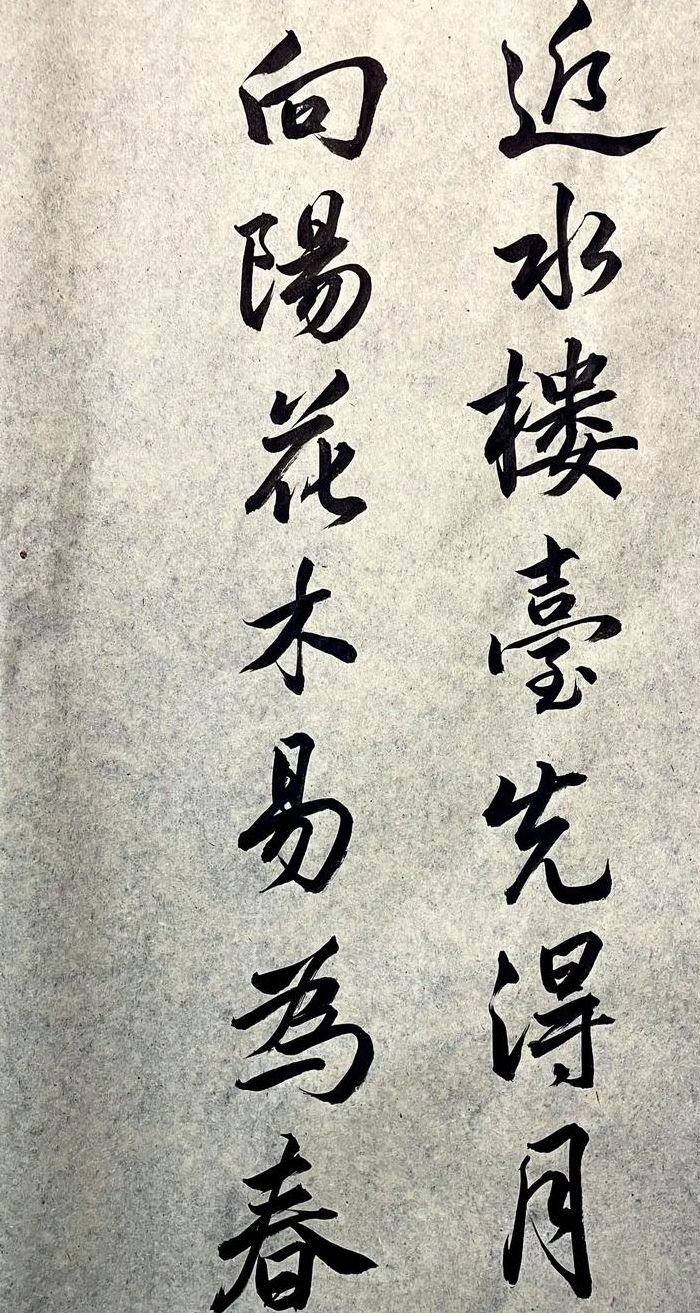 近水楼臺先得月
向陽花木易為春